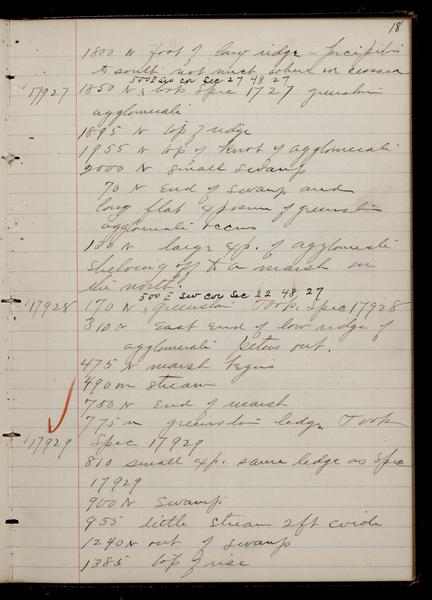 18
1800 N foot of low ridge - precipitous
to south not much where we cross
500 E SW cor Sec 27 48 27
17927 1850 N took Spec 1727 greenstone
agglomerate
1895 N top of ridge
1955 N top of knot of agglomerate
2000 N small swamp
70 N End of swamp and
long flat exposure of greenstone
agglomerate occurs
130 N large exp. of agglomerate
shelving off to a marsh on
the north.
500 E SW cor Sec 22 48, 27
17928 170 N greenstone Took Spec 17928
310 N East End of low ridge of
agglomerate peters out.
475 N marsh begins
490 m stream
750 N End of marsh
775 m greenstone ledge Took
17929 Spec 17929
810 small exp. same ledge as Spec
17929
900 N Swamp
955 little stream 2ft wide
1240 N out of swamp
1385 top of rise